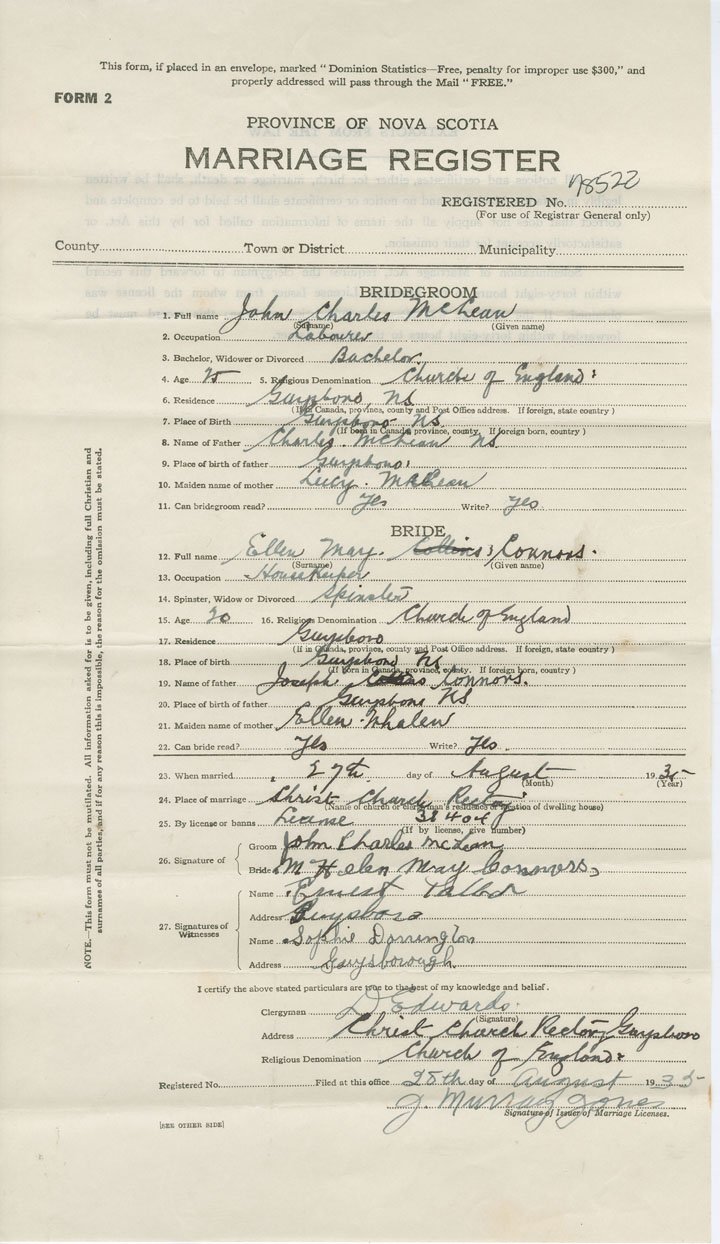 This form, if placed in an envelope, marked "Dominion Statistics—Free, penalty for improper use $300," and
properly addressed will pass through the Mail "FREE."
FORM 2
PROVINCE OF NOVA SCOTIA
MARRIAGE REGISTER
REGISTERED No. 78522
(For use of Registrar General only)
County Town or District Municipality
BRIDEGROOM
1. Full name John Charles McLean
(Surname) (Given name)
2. Occupation Labourer
3. Bachelor, Widower or Divorced Bachelor
4. Age 25 5. Religious Denomination Church of England
6. Residence Guysboro NS
(If in Canada, province, county and Post Office address. If foreign, state country)
7. Place of Birth Guysboro NS
(If born in Canada, province, county. If foreign born, country)
8. Name of Father Charles McLean NS
9. Place of birth of father Guysboro
10. Maiden name of mother Lucy McLean
11. Can bridegroom read? Yes Write? Yes
BRIDE
12. Full name Ellen May Collins Connors.
(Surname) (Given name)
13. Occupation Housekeeper
14. Spinster, Widow or Divorced Spinster
15. Age 20 16. Religious Denomination Church of England
17. Residence Guysboro
(If in Canada, province, county and Post Office address. If foreign, state country)
18. Place of birth Guysboro NS
(If born in Canada, province, county. If foreign born, country)
19. Name of father Joseph Connors.
20. Place of birth of father Guysboro NS
21. Maiden name of mother Ellen Whalen
22. Can bride read? Yes Write? Yes.
23. When married 27th day of August 1935
(Month) (Year)
24. Place of marriage Christ Church Rectory
(Name of church or clergyman's residence or location of dwelling house)
25. By license or banns License 38404
(If by license, give number)
26. Signature of
Groom John Charles McLean
Bride Helen May Connors
27. Signatures of Witnesses
Name Ernest Talbot
Address Guysboro
Name Sophie Dorrington
Address Guysborough.
I certify the above stated particulars are true to the best of my knowledge and belief.
Clergyman D Edwards.
(Signature)
Address Christ Church Rectory Guysboro
Religious Denomination Church of England
Registered No. Filed at this office 28th day of August 1935
J. Murray Jones
Signature of Issuer of Marriage Licenses.
[SEE OTHER SIDE]
NOTE.—This form must not be mutilated. All information asked for is to be given, including full Christian and
surnames of all parties, and if for any reason this is impossible, the reason for the omission must be stated.